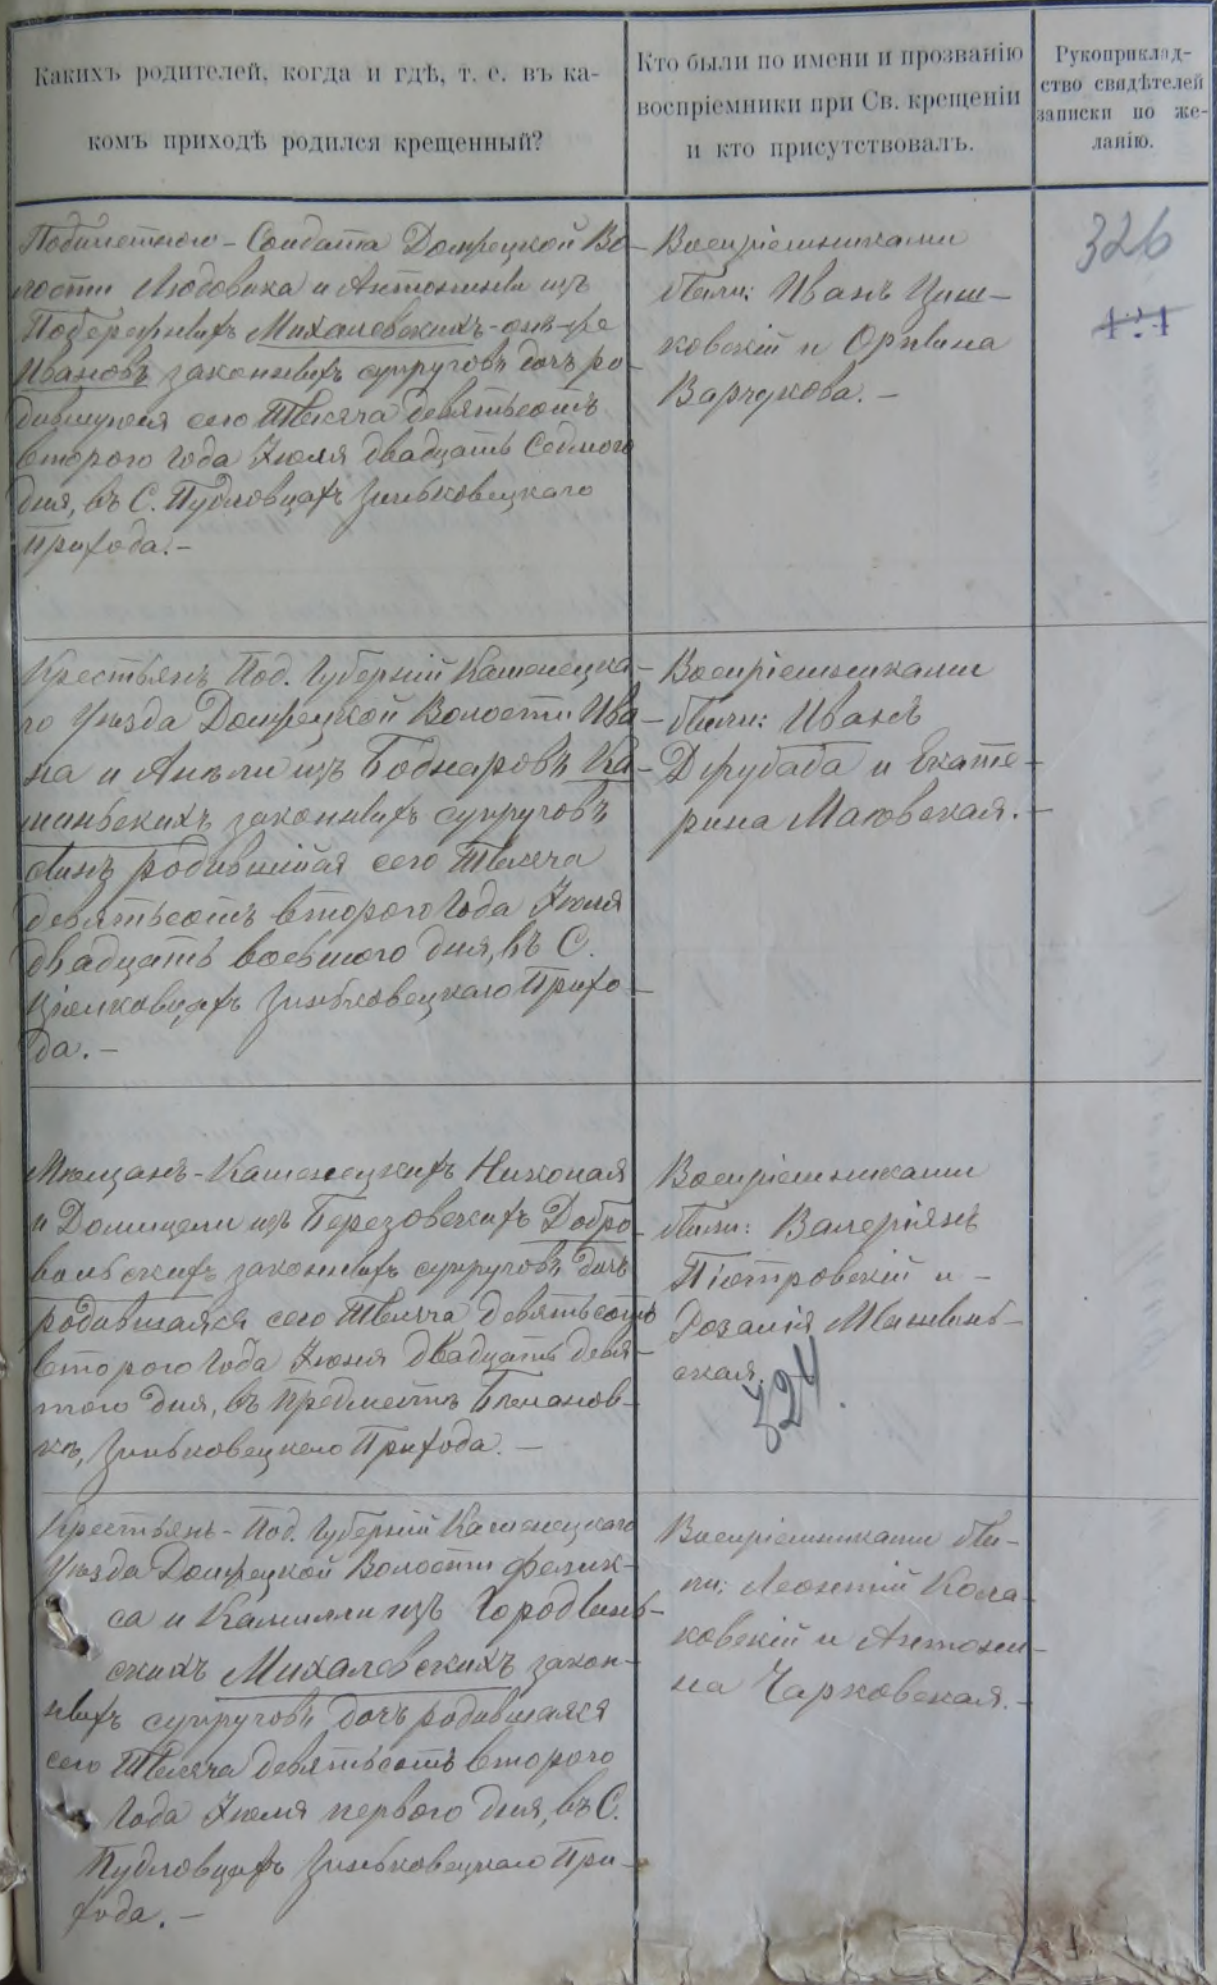 Какихъ родителей, когда и гдѣ, т. е. въ ка-
комъ приходѣ родился крещенный?
Кто были по имени и прозванію
воспріемники при Св. крещеніи
и кто присутствовалъ.
Рукоприклад-
ство свидѣтелей
записки по же-
ланію.
Солдата Должецкой Во-
лости Людовика и Антонины изъ
Побережныхъ Михаловскихъ-онъ-же
Ивановъ законныхъ супруговъ дочь ро-
дившуюся сего Тысяча девятьсотъ
второго Года Іюля двадцать Седмого
дня, въ С. Пудловцахъ Зиньковецкаго
Прихода.-
Воспріемниками
были: Иванъ Циш-
ковскій и Орлина
Варчукова.-
326
Крестьянъ Под. Губерніи Каменецка-
го Уѣзда Должецкой Волости Ива-
на и Анели изъ Боднаровъ Ка-
миньскихъ законныхъ супруговъ
сынъ родившійся сего Тысяча
девятьсотъ второго Года Іюня
двадцать восьмого дня, въ С.
Цвикловцахъ Зиньковецкаго Прихо-
да.-
Воспріемниками
были: Иванъ
Држубаба и Екате-
рина Маковская.-
Мѣщанъ-Каменецкихъ Николая
и Домицели изъ Березовскихъ Добро-
вольскихъ законныхъ супруговъ дочь
родившаяся сего Тысяча девятьсотъ
второго Года Іюня двадцать девя-
того дня, въ предмѣстѣ Бѣлановк-
кѣ, Зиньковецкаго Прихода.-
Воспріемниками
были: Валеріянъ
Піотровскій и-
Розалія Млынынь-
ская.
324.
Крестьянъ-Под. Губерніи Каменецкаго
Уѣзда Должецкой Волости Феликк-
са и Камилли изъ Городынь-
скихъ Михаловскихъ закон-
ныхъ супруговъ дочь родившаяся
сего Тысяча девятьсотъ второго
Года Іюля первого дня, въ С.
Пудловцахъ Зиньковецкаго При-
хода.-
Воспріемниками бы-
ли: Леонтій Кола-
ковскій и Антони-
на Чарковская.-